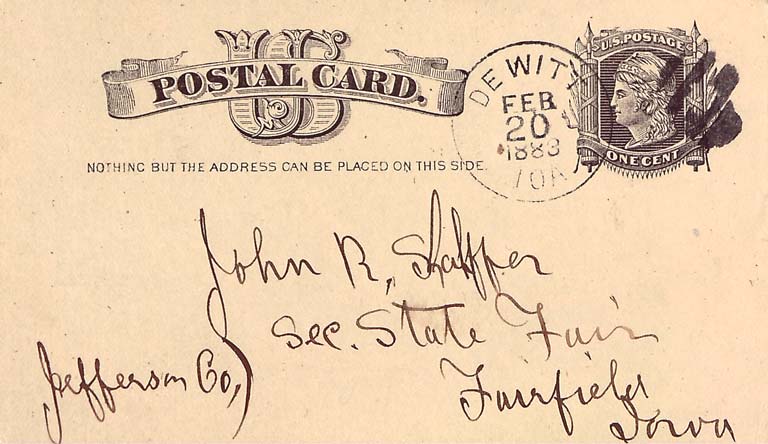 US
POSTAL CARD.
NOTHING BUT THE ADDRESS CAN BE PLACED ON THIS SIDE.
DE WITT
FEB
20
1883
IOA
U.S. POSTAGE
ONE CENT
John R, Shaffer
Sec. State Fair
Jefferson Co,) Fairfield
Iowa